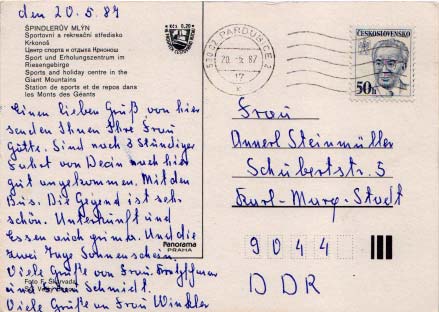 den 20.5.87
ŠPINDLERŮV MLÝN
Sportovní a rekreační středisko
Krkonoš
Центр спорта и отдыха Крконош
Sport und Erholungszentrum im
Riesengebirge
Sports and holiday centre in the
Giant Mountains
Station de sports et de repos dans
les Monts des Géants
Kčs 0,20
Einen lieben Gruß von hier
senden Ihnen Ihre Frau
Götte. Sind nach 3 ständiger
Fahrt von Decin nach hier
gut angekommen. Mit dem
Bus. Die Gegend ist sehr
schön. Unterkunft und
Essen auch prima. Und die
zwei Tage Sonnenschein.
Viele Grüße von Frau
und Frau Schmidt.
Viele Grüße an Frau Winkler
Foto F. Skřivada
Panorama
PRAHA
530 02 PARDUBICE 2
20. -5. 87
17
ČESKOSLOVENSKO
50h
Frau
Annerl Steinmüller
Schubertstr. 5
Karl-Marx-Stadt
9044
DDR